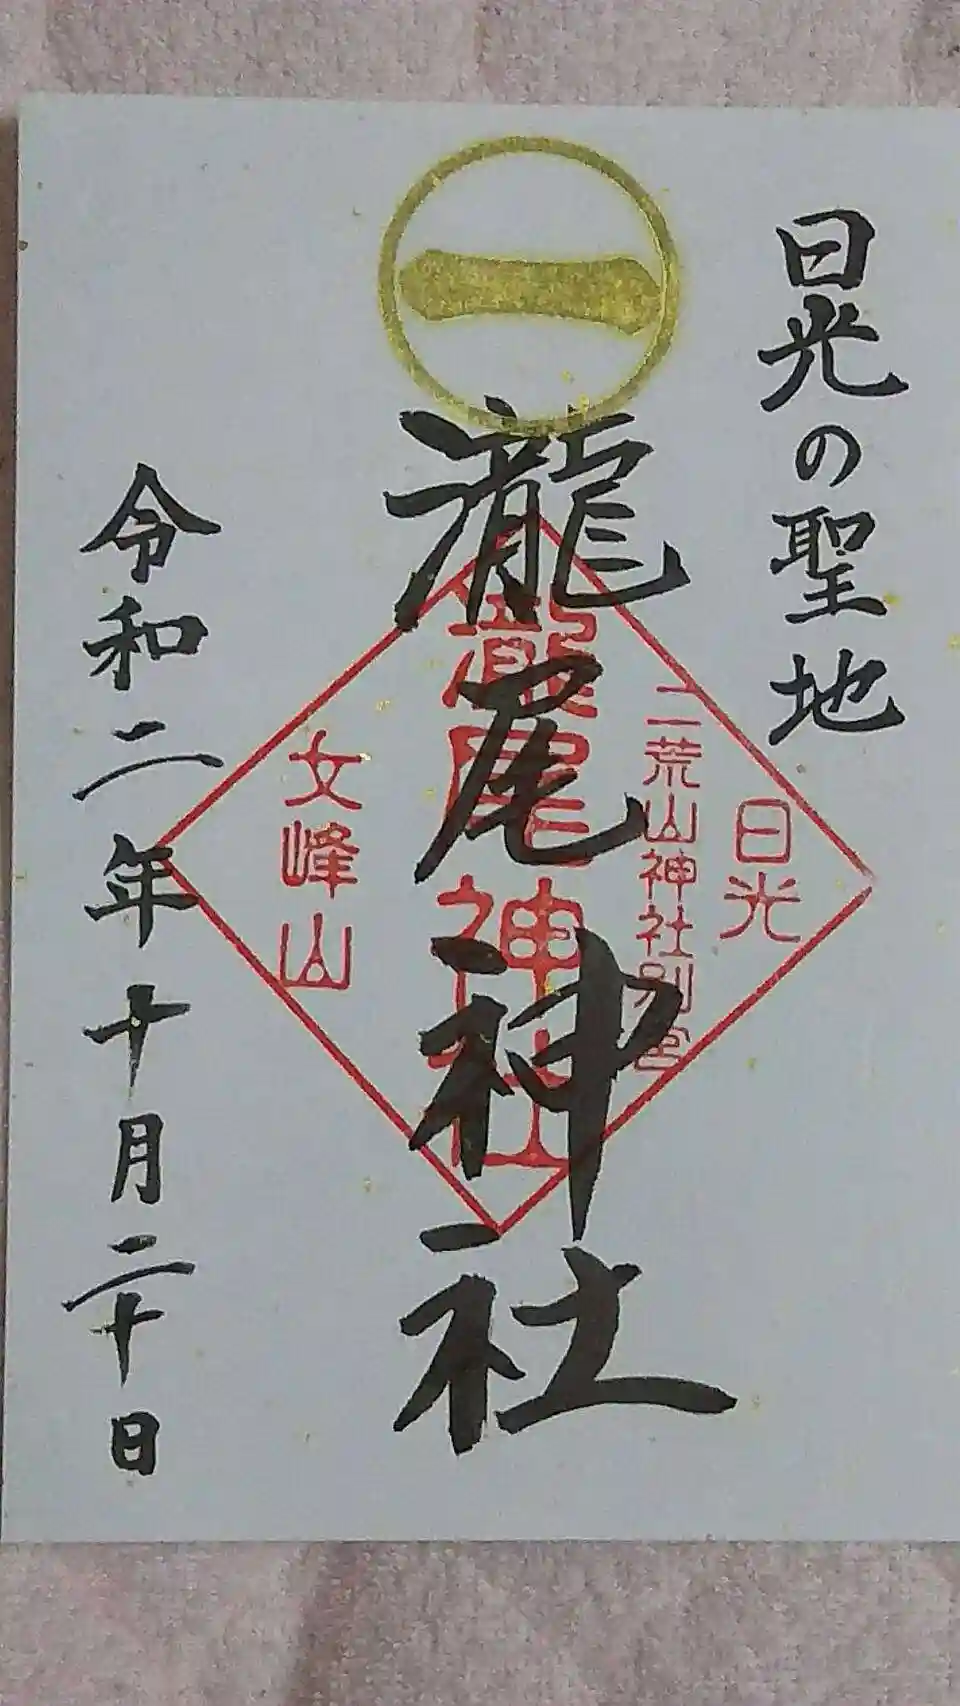 日光の聖地
一
瀧尾神社
日光
二荒山神社別宮
瀧尾神社
女峰山
令和二年十月二十日